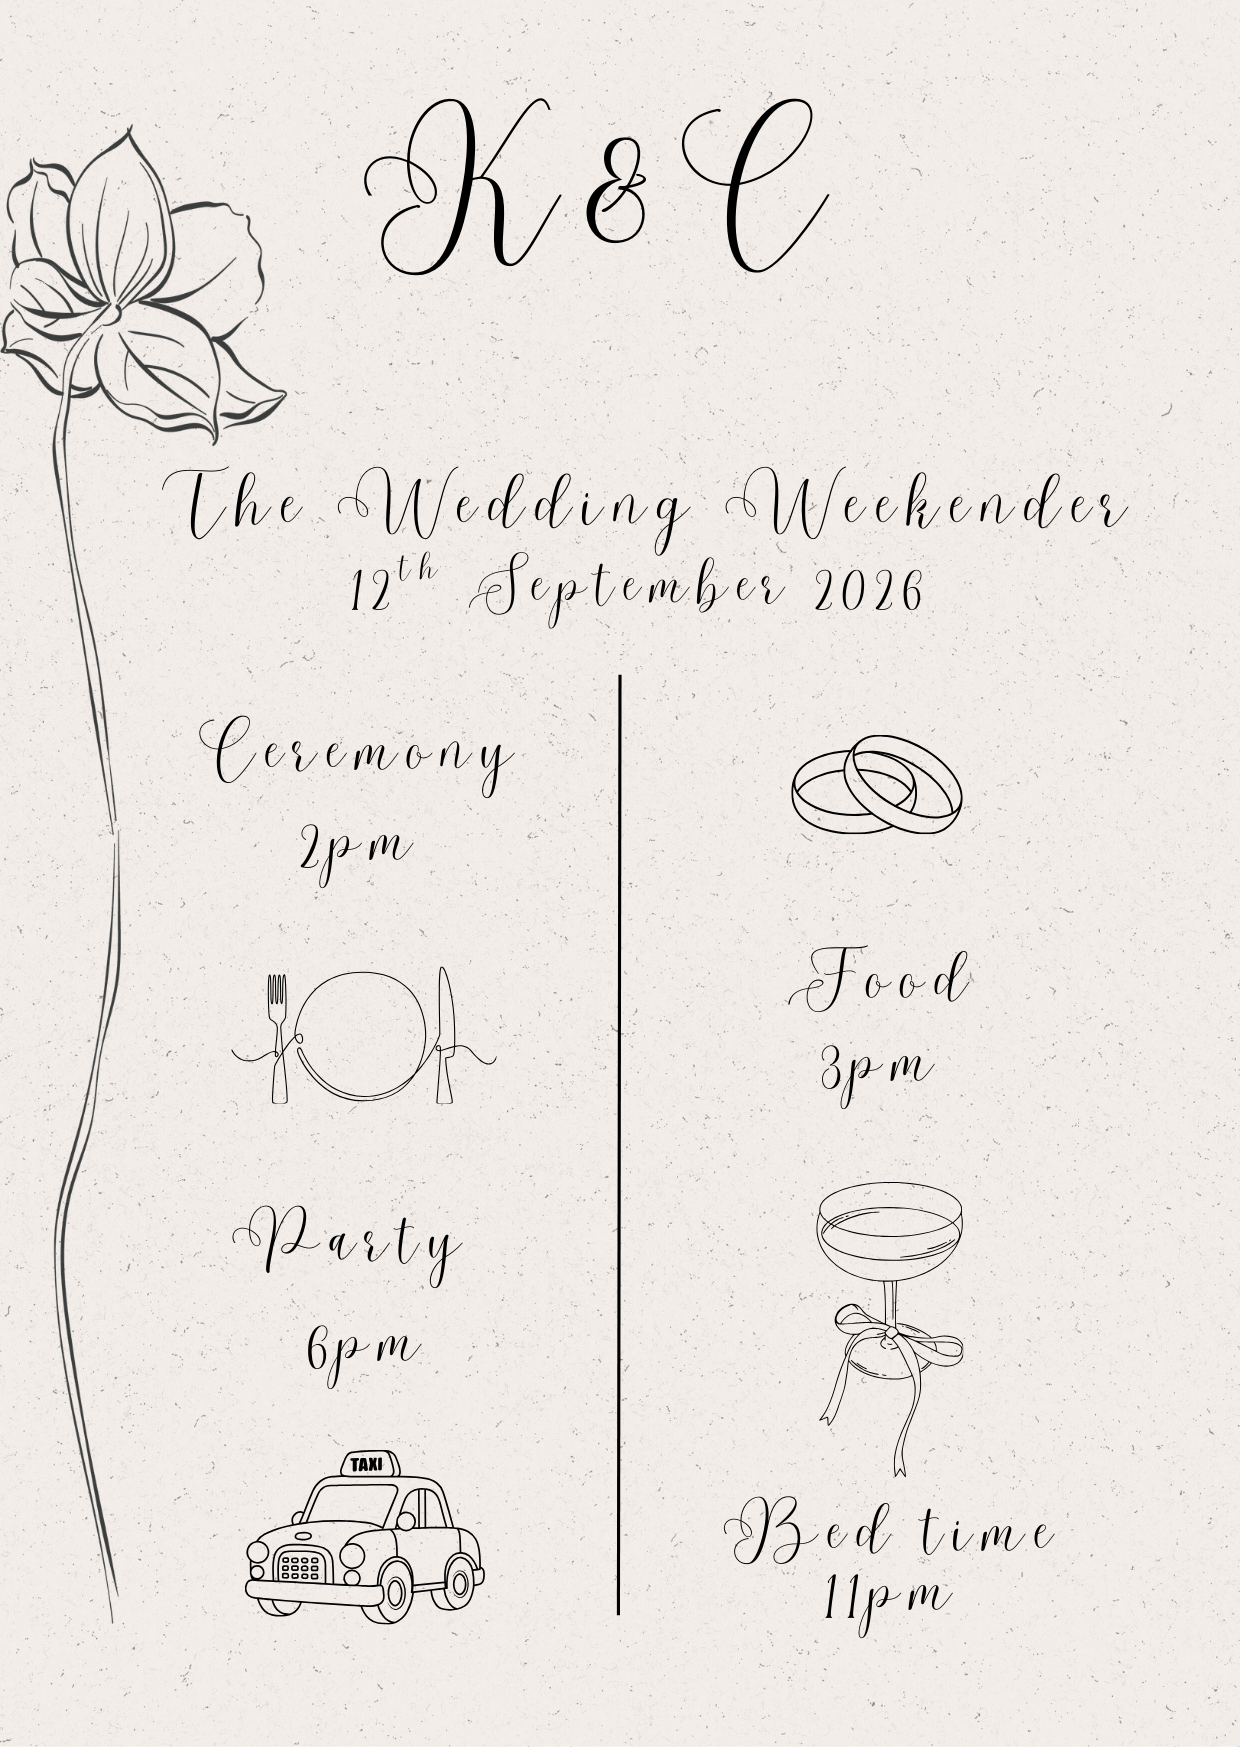 K & C
The Wedding Weekender
12th September 2026
Ceremony
2pm
Food
3pm
Party
6pm
TAXI
Bed time
11pm